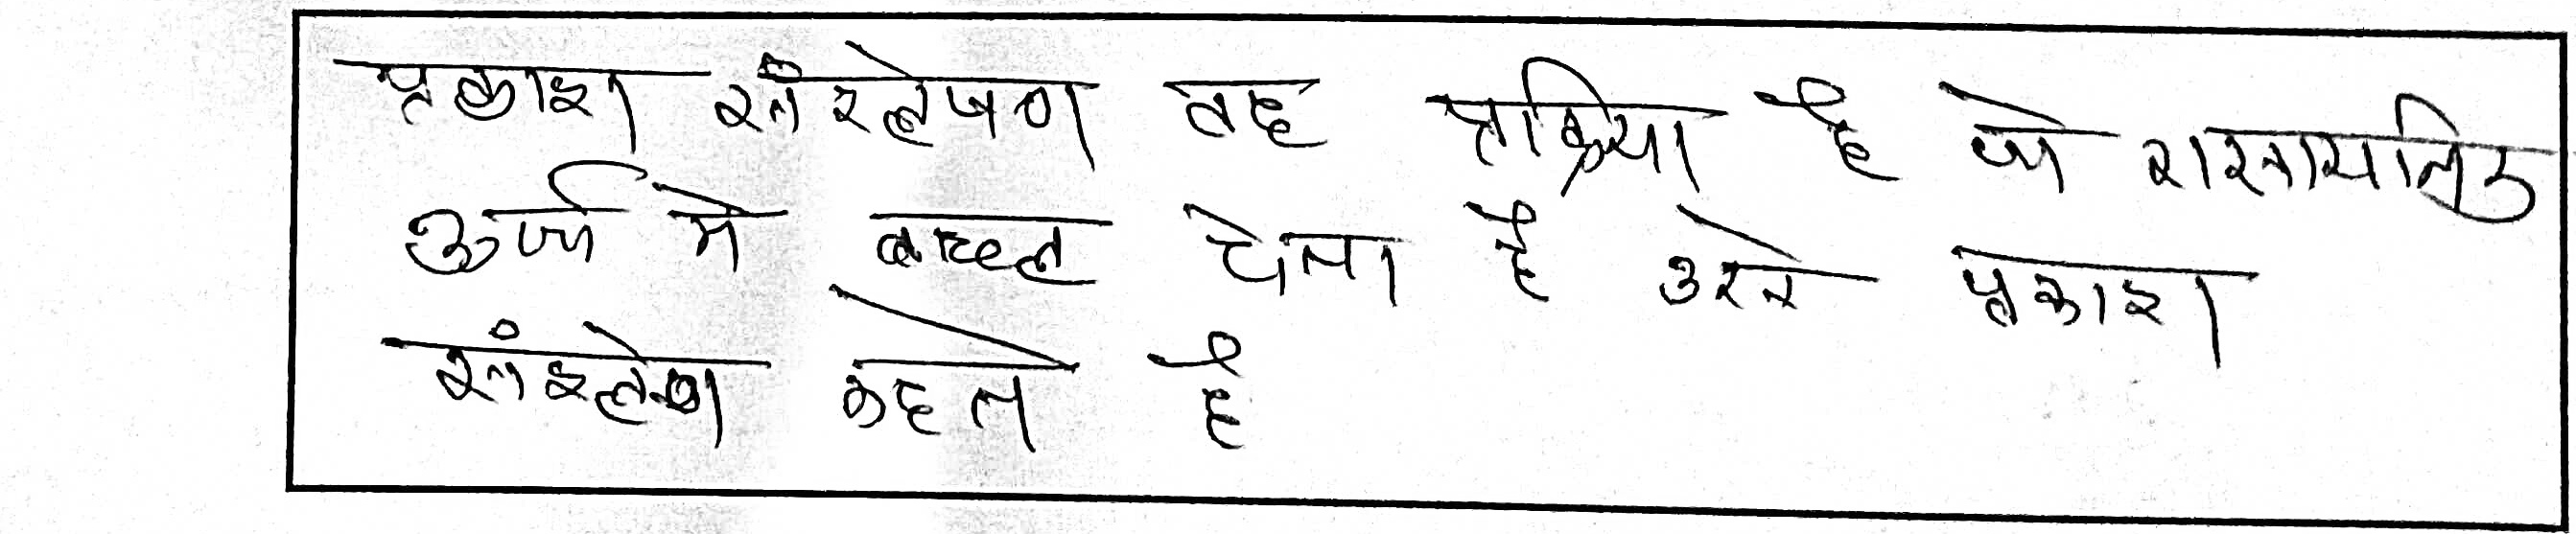 प्रकाश संश्लेषण वह प्रक्रिया है जो रासायनिक
ऊर्जा मे बदल देता है उसे प्रकाश
संश्लेण कहते है